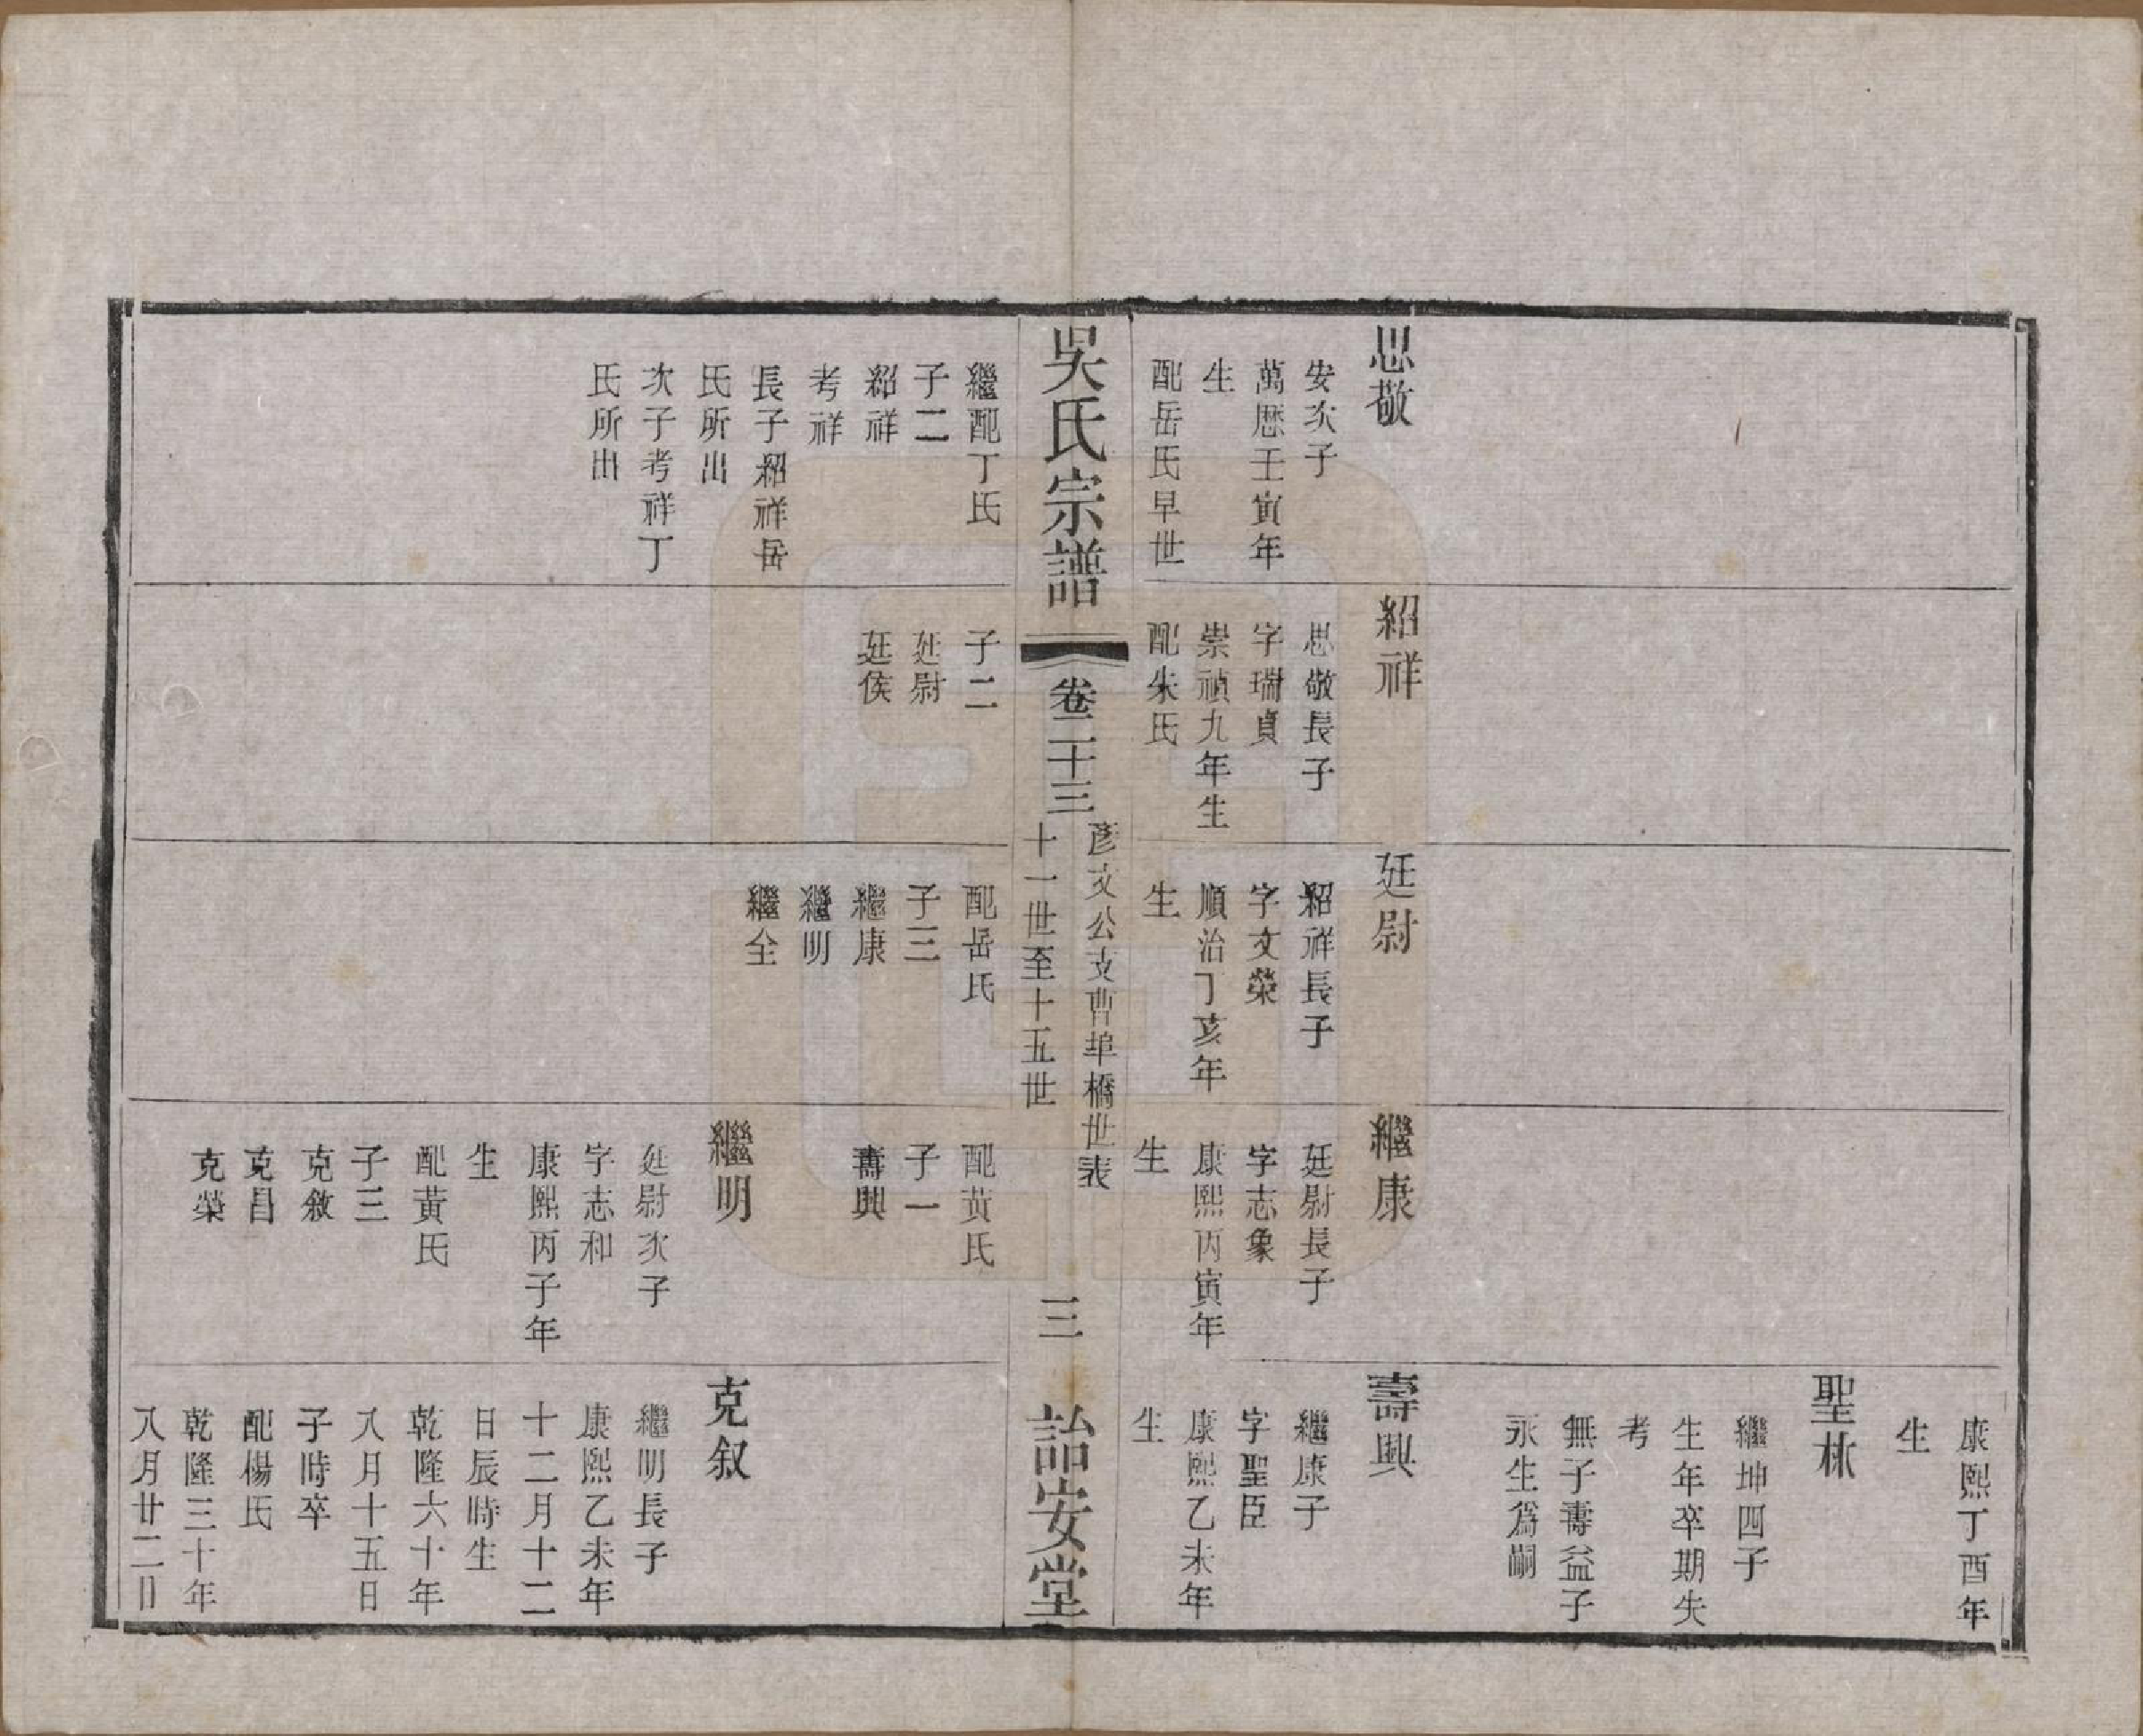 思敬
安次子
萬厯壬寅年
生
配岳氏早世
紹祥
思敬長子
字瑞貞
崇禎九年生
配朱氏
廷尉
紹祥長子
字文榮
順治丁亥年
生
繼康
廷尉長子
字志象
康熙丙寅年
生
康熙丁酉年
生
聖林
繼坤四子
生年卒期失
考
無子壽益子
永生爲嗣
壽興
繼康子
字聖臣
康熙乙未年
生
吳氏宗譜
卷二十三
彥文公支曹埠橋世表
十一世至十五世
三
詒安堂
繼配丁氏
子二
紹祥
考祥
長子紹祥岳
氏所出
次子考祥丁
氏所出
子二
廷尉
廷侯
配岳氏
子三
繼康
繼明
繼全
配黃氏
子一
壽興
繼明
廷尉次子
字志和
康熙丙子年
生
配黃氏
子三
克敘
克昌
克榮
克叙
繼明長子
康熙乙未年
十二月十二
日辰時生
乾隆六十年
八月十五日
子時卒
配楊氏
乾隆三十年
八月廿二日